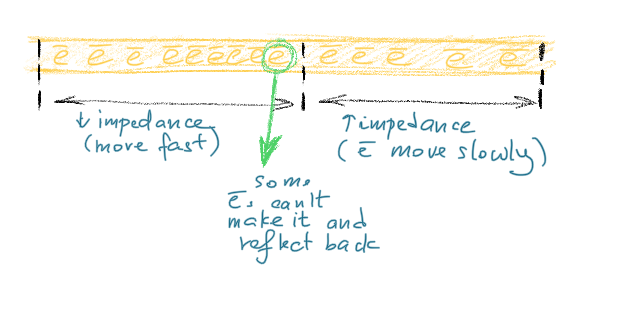 ē ē ē ē ē ē ē ē ē ē ē ē ē ē
↓ impedance
(move fast)
↑ impedance
(ē move slowly)
some
ēs can't
make it and
reflect back